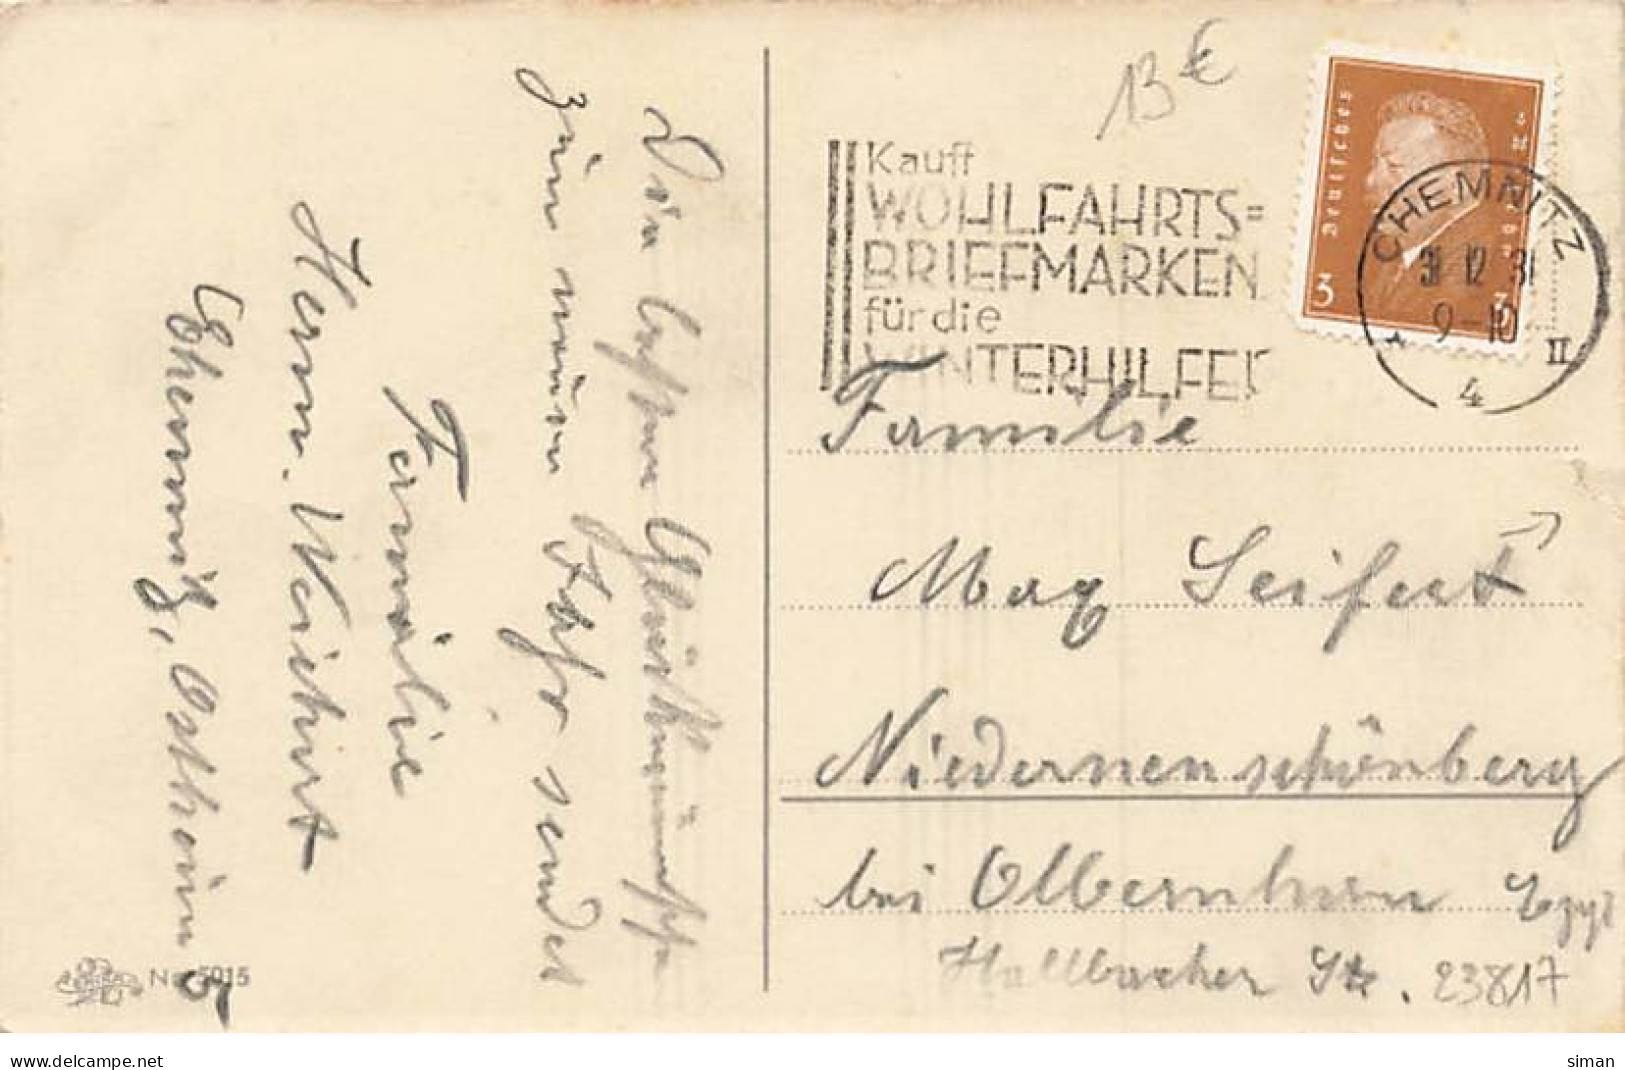 Die besten Glückwünsche
zum neuen Jahr sendet
Familie
Herm. Weichert
Chemnitz, Ostheim 5
No 5015
13 €
Kauft
WOHLFAHRTS=
BRIEFMARKEN
für die
WINTERHILFE
Deutsches Reich
3 3
CHEMNITZ
31 12 31
9-10
* II
4
Familie
Max Seifert
Niederneuschönberg
bei Olbernhau Erzg.
Hallbacher Str. 23817
www.delcampe.net
siman